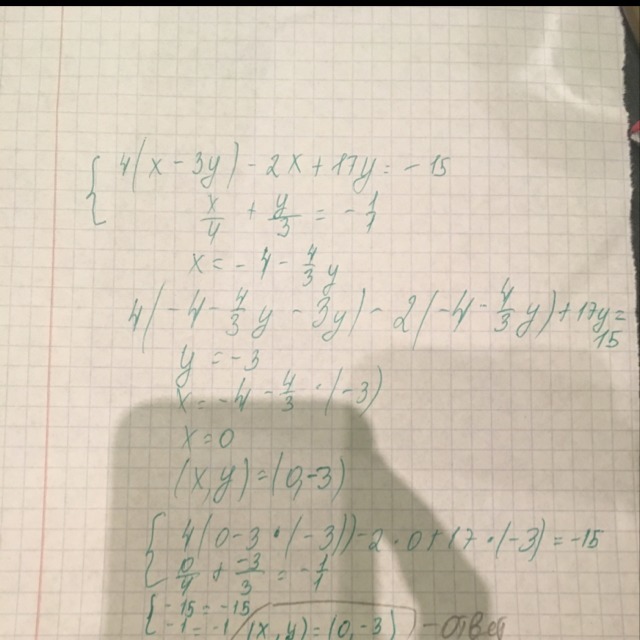 { 4(x - 3y) - 2x + 17y = -15
x/4 + y/3 = -1/1
x = -4 - 4/3 y
4(-4 - 4/3 y - 3y) - 2(-4 - 4/3 y) + 17y = 15
y = -3
x = -4 - 4/3 · (-3)
x = 0
(x, y) = (0, -3)
{ 4(0 - 3 · (-3)) - 2 · 0 + 17 · (-3) = -15
0/4 + -3/3 = -1
{ -15 = -15
-1 = -1 (x, y) = (0, -3) - ответ